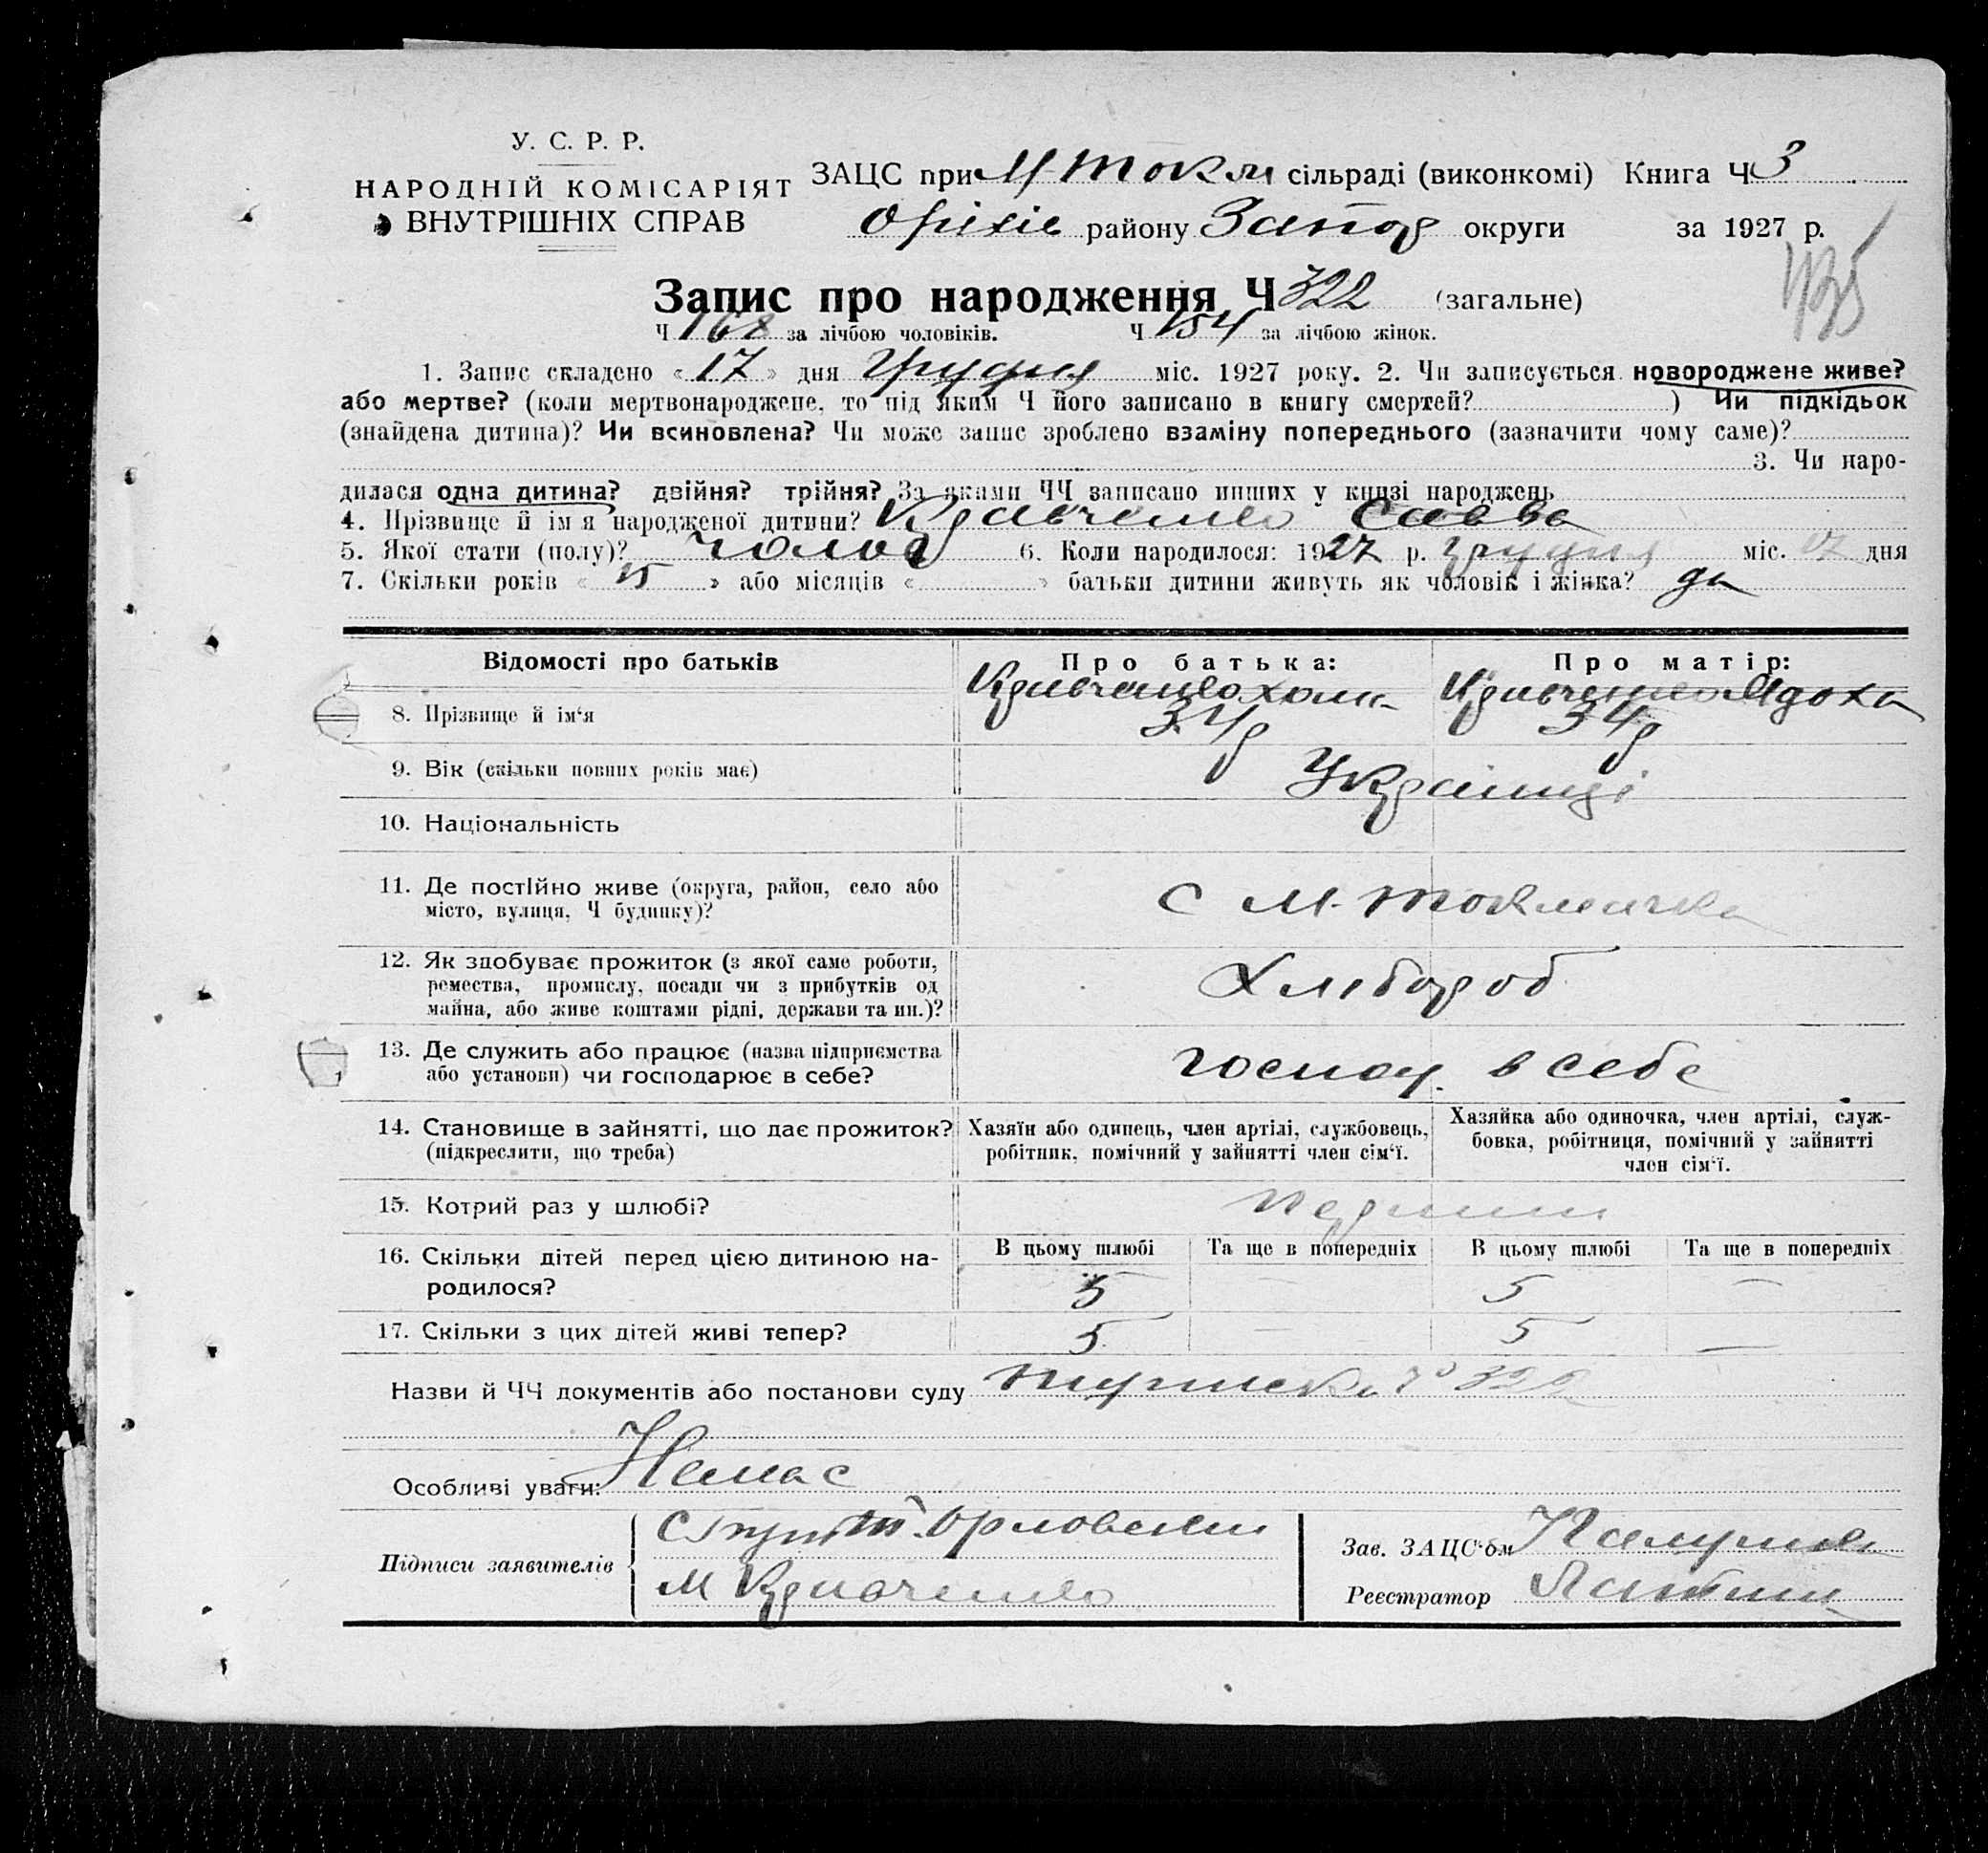 У. С. Р. Р.
НАРОДНІЙ КОМІСАРІЯТ
ВНУТРІШНІХ СПРАВ
ЗАЦС при М-Токм сільраді (виконкомі) Книга Ч 3
Оріхів району Запор округи за 1927 р.
Запис про народження Ч 322 (загальне)
Ч 168 за лічбою чоловіків. Ч 154 за лічбою жінок.
1. Запис складено « 17 » дня Грудня міс. 1927 року. 2. Чи записується новороджене живе?
або мертве? (коли мертвонароджене, то під яким Ч його записано в книгу смертей? ) Чи підкідьок
(знайдена дитина)? Чи всиновлена? Чи може запис зроблено взаміну попереднього (зазначити чому саме)?
3. Чи наро-
дилася одна дитина? двійня? трійня? За яками ЧЧ записано инших у книзі народжень
4. Прізвище й ім я народженої дитини? Кравченко Савва
5. Якої стати (полу)? чолов 6. Коли народилося: 1927 р. грудня міс. 17 дня
7. Скільки років « 15 » або місяців « » батьки дитини живуть як чоловік і жінка? да
Відомості про батьків
Про батька:
Про матір:
8. Прізвище й ім‘я
Кравченко
Кравченко Ядоха
34р
34р
9. Вік (скільки повних років має)
Українці
10. Національність
11. Де постійно живе (округа, район, село або
місто, вулиця, Ч будинку)?
С М-Токмачка
12. Як здобуває прожиток (з якої саме роботи,
ремества, промислу, посади чи з прибутків од
майна, або живе коштами рідні, держави та ин.)?
Хлібороб
13. Де служить або працює (назва підприємства
або установи) чи господарює в себе?
господ. в себе
14. Становище в зайнятті, що дає прожиток?
(підкреслити, що треба)
Хазяїн або одинець, член артілі, службовець,
робітник, помічний у зайнятті член сім‘ї.
Хазяйка або одиночка, член артілі, служ-
бовка, робітниця, помічний у зайнятті
член сім‘ї.
15. Котрий раз у шлюбі?
16. Скільки дітей перед цією дитиною на-
родилося?
В цьому шлюбі Та ще в попередніх В цьому шлюбі Та ще в попередніх
5 — 5 —
17. Скільки з цих дітей живі тепер?
5 — 5 —
Назви й ЧЧ документів або постанови суду № 322
Особливі уваги: Немає
Підписи заявителів
Орловский
М Кравченко
Зав. ЗАЦС‘ом
Реєстратор